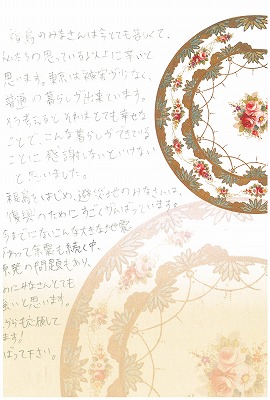 福島のみなさんは今とても苦しくて、
私たちの思っている以上に辛いと
思います。東京は被害が少なく、
普通の暮らしが出来ています。
そう考えると それはとても幸せな
ことで、こんな暮らしができている
ことに 感謝しないといけない
と思いました。
福島をはじめ、被災地のみなさんは、
復興のために すごくがんばっています。
今までにないこんな大きな地震
余震も続く中、
原発の問題もあり、
のにみなさんとても
強いと思います。
これからも応援して
ます!
がんばって下さい。